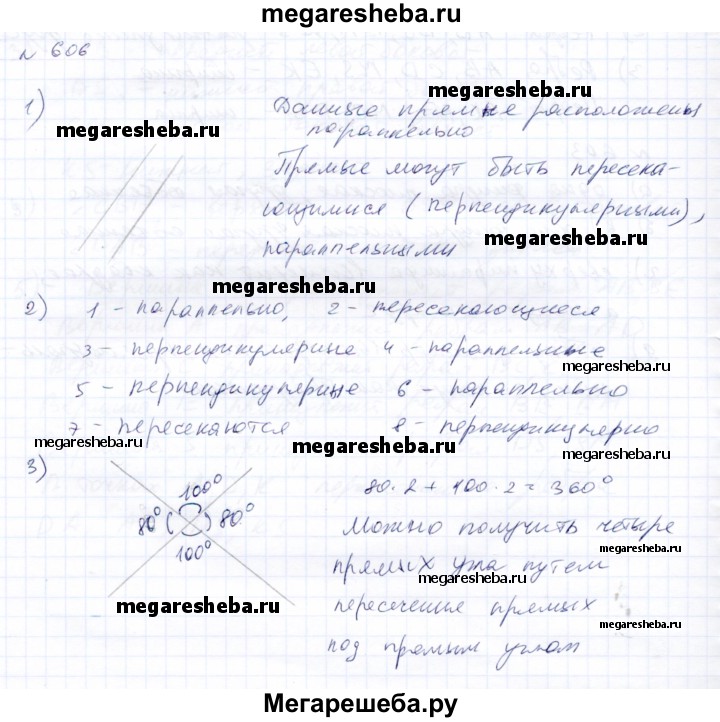 megaresheba.ru
№ 606
megaresheba.ru
1) Данные прямые расположены
параллельно
megaresheba.ru
Прямые могут быть пересека-
ющимися (перпендикулярными),
megaresheba.ru
параллельными
megaresheba.ru
2) 1 - параллельно, 2 - пересекающиеся
3 - перпендикулярные 4 - параллельные
megaresheba.ru
5 - перпендикулярные 6 - параллельно
7 - пересекаются 8 - перпендикулярно
megaresheba.ru megaresheba.ru megaresheba.ru
3) 100° 80·2 + 100·2 = 360°
80° 80°
100°
Можно получить четыре
прямых угла путем
megaresheba.ru
megaresheba.ru пересечение прямых
megaresheba.ru
под прямым углом
Мегарешеба.ру